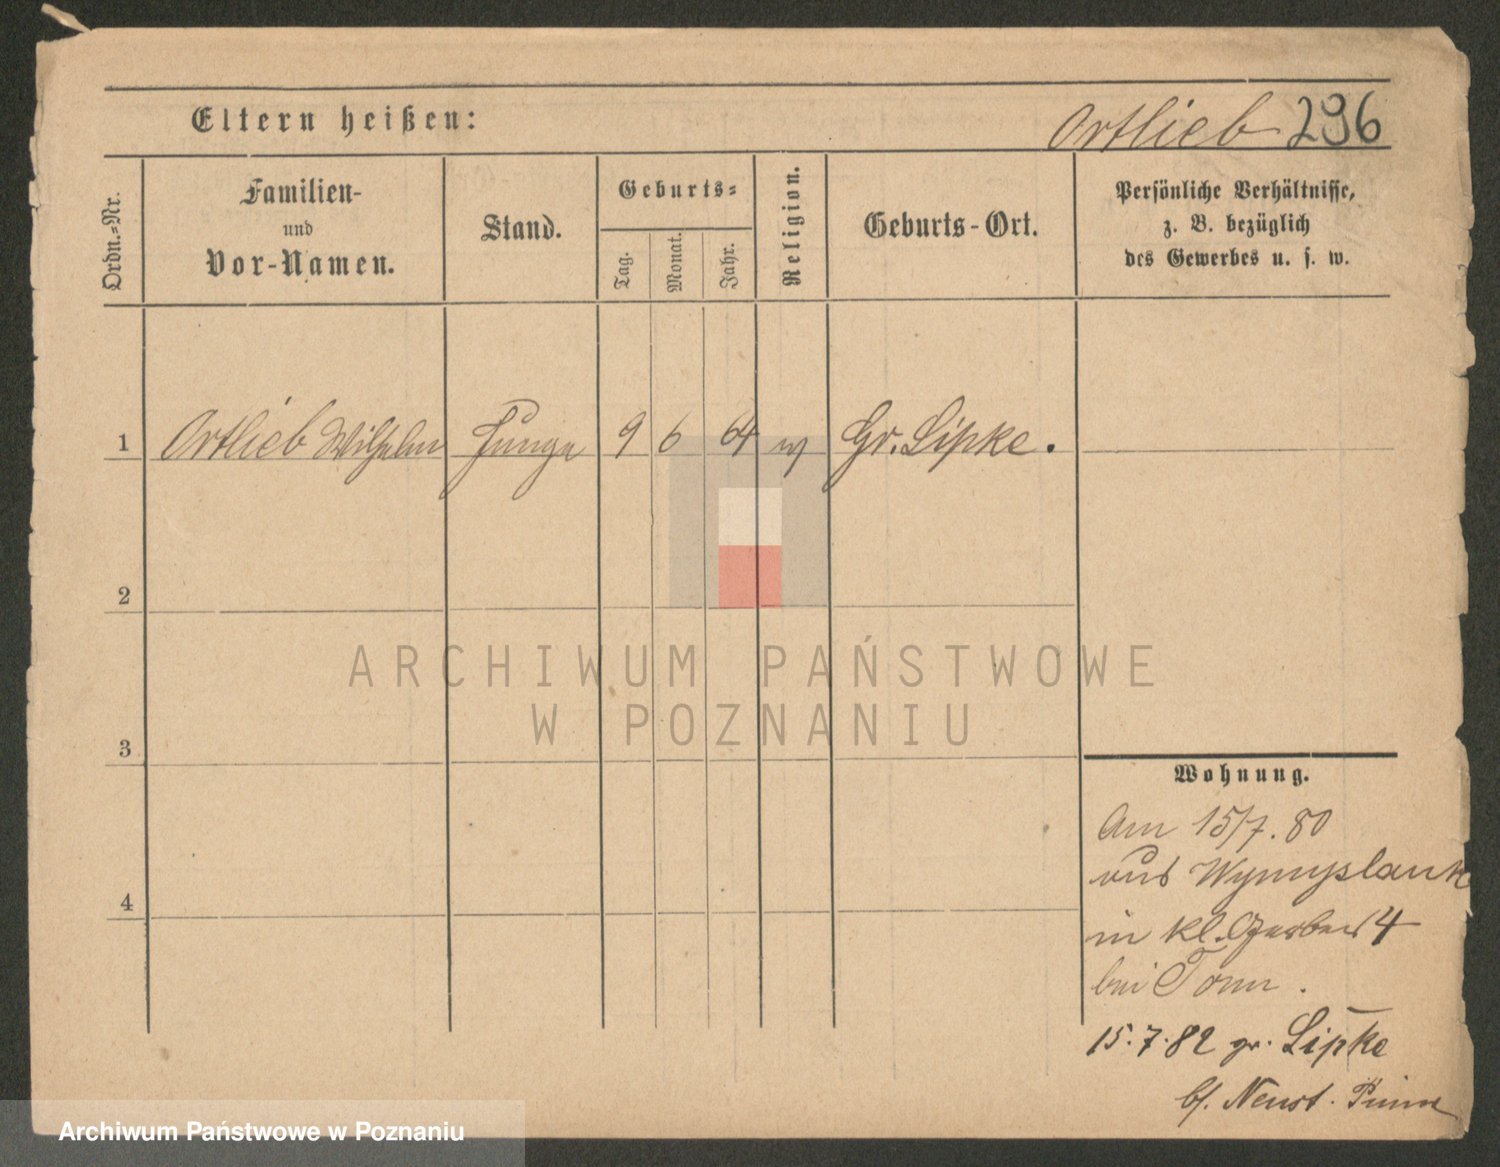 Eltern heißen: Ortlieb 296
Ordn.-Nr.
Familien-
und
Vor-Namen.
Stand.
Geburts-
Tag.
Monat.
Jahr.
Religion.
Geburts-Ort.
Persönliche Verhältnisse,
z. B. bezüglich
des Gewerbes u. s. w.
1 Ortlieb Wilhelm Junge 9 6 64 Gr. Lipke.
2
3
4
Wohnung.
Am 15/7. 80
aus Wymyslank
in kl. 4
bei Tonn.
15.7.82 gr. Lipke
Neust.
ARCHIWUM PAŃSTWOWE
W POZNANIU
Archiwum Państwowe w Poznaniu